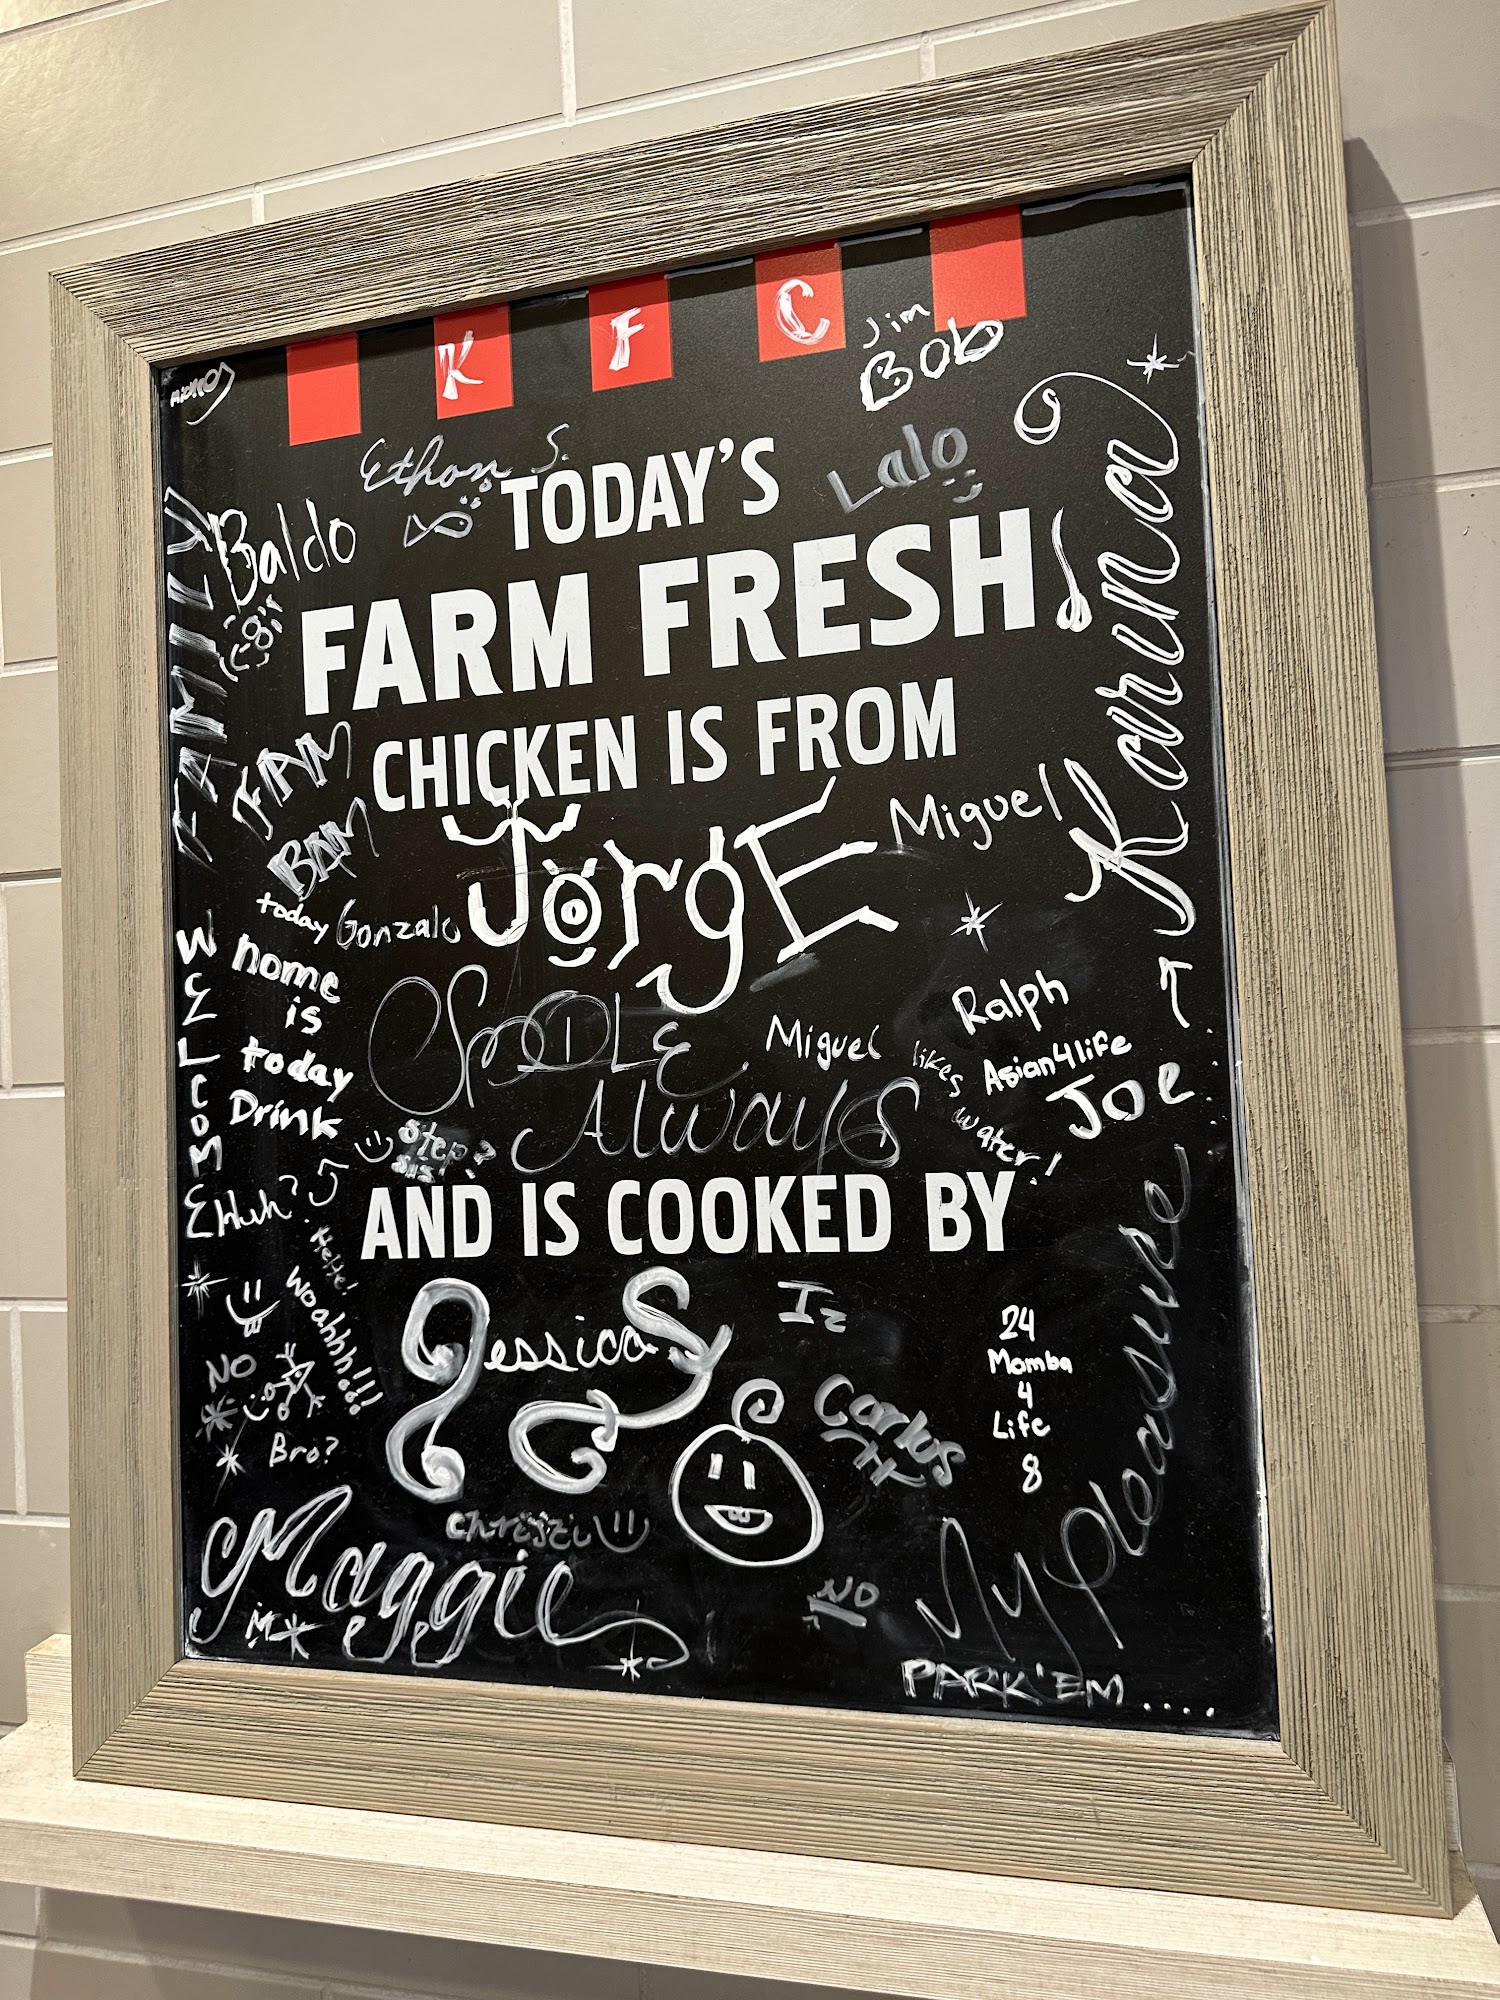 K F C
Jim
Bob
Ethan S.
Lalo
TODAY'S
Baldo
FARM FRESH
FAMILY
Karina
CHICKEN IS FROM
FAM
BAM
Miguel
JorgE
today Gonzalo
WELCOME
home
is
today
Drink
SmOLE
Always
Miguel likes water!
Ralph
Asian4life
Joe
Step
sis?
Huh?
AND IS COOKED BY
HeHe!
Woahhhh!!!
Jessica
Iz
24
Mamba
4
Life
8
NO
Bro?
Carlos
TK
Christi
Maggie
M
NO
My pleasure
PARK'EM....